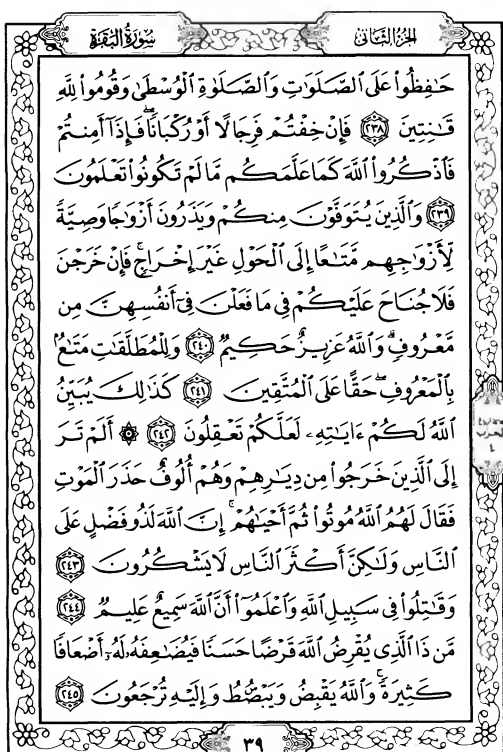 سُورَةُ البَقَرَةِ
الجزء الثاني
حَٰفِظُوا۟ عَلَى ٱلصَّلَوَٰتِ وَٱلصَّلَوٰةِ ٱلْوُسْطَىٰ وَقُومُوا۟ لِلَّهِ
قَٰنِتِينَ ٢٣٨ فَإِنْ خِفْتُمْ فَرِجَالًا أَوْ رُكْبَانًا ۖ فَإِذَآ أَمِنتُمْ
فَٱذْكُرُوا۟ ٱللَّهَ كَمَا عَلَّمَكُم مَّا لَمْ تَكُونُوا۟ تَعْلَمُونَ
٢٣٩ وَٱلَّذِينَ يُتَوَفَّوْنَ مِنكُمْ وَيَذَرُونَ أَزْوَٰجًا وَصِيَّةً
لِّأَزْوَٰجِهِم مَّتَٰعًا إِلَى ٱلْحَوْلِ غَيْرَ إِخْرَاجٍ ۚ فَإِنْ خَرَجْنَ
فَلَا جُنَاحَ عَلَيْكُمْ فِى مَا فَعَلْنَ فِىٓ أَنفُسِهِنَّ مِن
مَّعْرُوفٍ ۗ وَٱللَّهُ عَزِيزٌ حَكِيمٌ ٢٤٠ وَلِلْمُطَلَّقَٰتِ مَتَٰعٌۢ
بِٱلْمَعْرُوفِ ۖ حَقًّا عَلَى ٱلْمُتَّقِينَ ٢٤١ كَذَٰلِكَ يُبَيِّنُ
ٱللَّهُ لَكُمْ ءَايَٰتِهِۦ لَعَلَّكُمْ تَعْقِلُونَ ٢٤٢ ۞ أَلَمْ تَرَ
إِلَى ٱلَّذِينَ خَرَجُوا۟ مِن دِيَٰرِهِمْ وَهُمْ أُلُوفٌ حَذَرَ ٱلْمَوْتِ
فَقَالَ لَهُمُ ٱللَّهُ مُوتُوا۟ ثُمَّ أَحْيَٰهُمْ ۚ إِنَّ ٱللَّهَ لَذُو فَضْلٍ عَلَى
ٱلنَّاسِ وَلَٰكِنَّ أَكْثَرَ ٱلنَّاسِ لَا يَشْكُرُونَ ٢٤٣
وَقَٰتِلُوا۟ فِى سَبِيلِ ٱللَّهِ وَٱعْلَمُوٓا۟ أَنَّ ٱللَّهَ سَمِيعٌ عَلِيمٌ ٢٤٤
مَّن ذَا ٱلَّذِى يُقْرِضُ ٱللَّهَ قَرْضًا حَسَنًا فَيُضَٰعِفَهُۥ لَهُۥٓ أَضْعَافًا
كَثِيرَةً ۚ وَٱللَّهُ يَقْبِضُ وَيَبْصُۜطُ وَإِلَيْهِ تُرْجَعُونَ ٢٤٥
الحزب
٤
٣٩